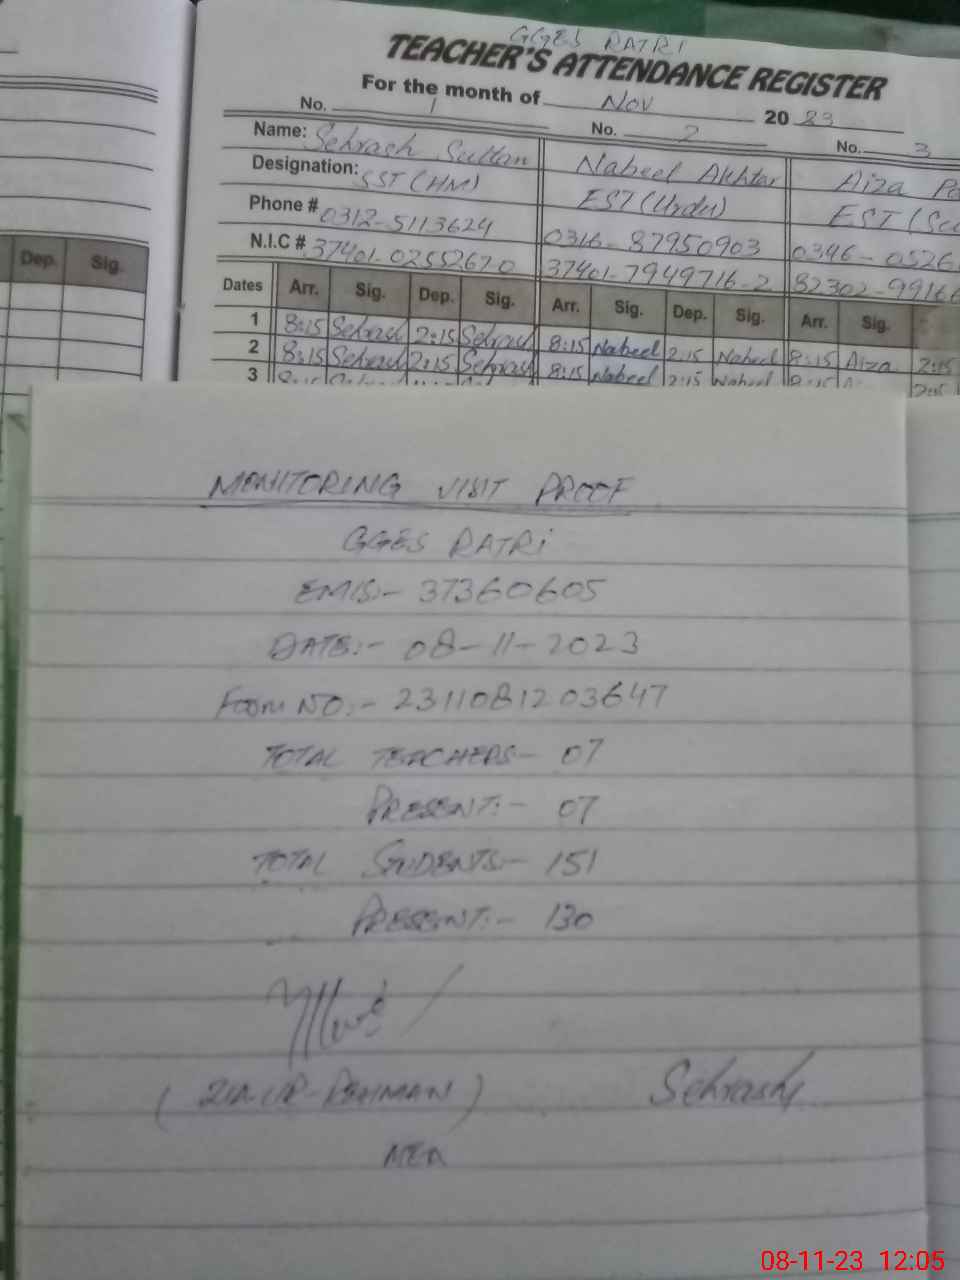 GGES RATRI
TEACHER'S ATTENDANCE REGISTER
For the month of Nov 2023
No. 1 No. 2 No. 3
Name: Sehrash Sultan Nabeel Akhtar Aiza
Designation: SST (HM) EST (Urdu) EST (Sc
Phone # 0312-5113624 0316-87950903 0346-0526
N.I.C # 37401-0255267.0 37401-7949716-2 82302-99166
Dep. Sig.
Dates Arr. Sig. Dep. Sig. Arr. Sig. Dep. Sig. Arr. Sig.
1 8:15 Sehrash 2:15 Sehrash 8:15 Nabeel 2:15 Nabeel 8:15 Aiza 2:15
2 8:15 Sehrash 2:15 Sehrash 8:15 Nabeel 2:15 Nabeel 8:15
3
MONITORING VISIT PROOF
GGES RATRI
EMIS:- 37360605
DATE:- 08-11-2023
Form NO:- 2311081203647
TOTAL TEACHERS:- 07
PRESENT:- 07
TOTAL STUDENTS:- 151
PRESENT:- 130
(ZIA-UR-REHMAN) Sehrash
MEA
08-11-23 12:05